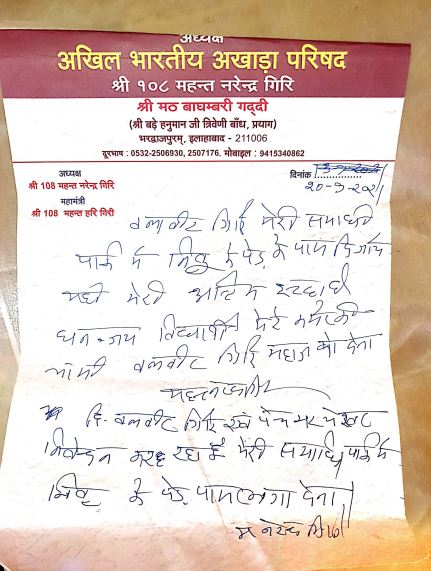 अध्यक्ष
अखिल भारतीय अखाड़ा परिषद
श्री १०८ महन्त नरेन्द्र गिरि
श्री मठ बाघम्बरी गद्दी
(श्री बड़े हनुमान जी त्रिवेणी बाँध, प्रयाग)
भरद्वाजपुरम्, इलाहाबाद - 211006
दूरभाष : 0532-2506930, 2507176, मोबाइल : 9415340862
अध्यक्ष
श्री 108 महन्त नरेन्द्र गिरि
महामंत्री
श्री 108 महन्त हरि गिरी
दिनांक
२०-९-२०२१
बलवीर गिरि मेरी समाधी
पार्क में के पेड़ के पास
यही मेरी अन्तिम इच्छा है
धनन्जय विद्यार्थी मेरे कमरे की
बलवीर गिरि महाराज को देना
बलवीर गिरि एवं पंच
निवेदन कर रहा हूँ मेरी समाधि पार्क में
के पेड़ पास लगा देना
म नरेन्द्र गिरि